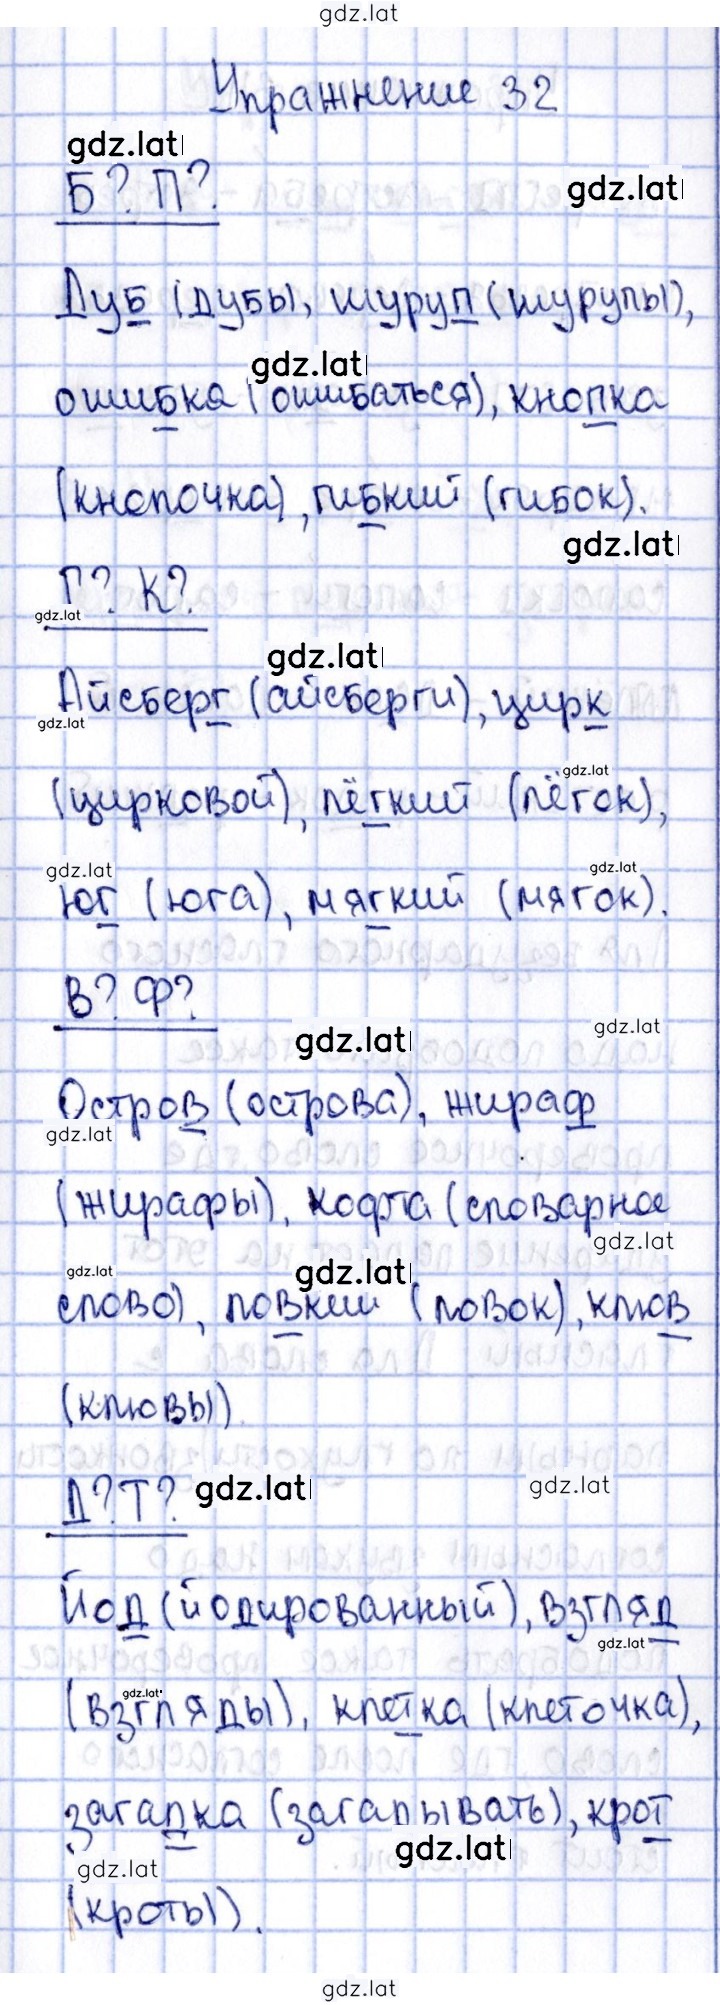 gdz.lat
Упражнение 32
gdz.lat
Б? П?
gdz.lat
Дуб (дубы), шуруп (шурупы),
gdz.lat
ошибка (ошибаться), кнопка
(кнопочка), гибкий (гибок).
gdz.lat
Г? К?
gdz.lat
gdz.lat
Айсберг (айсберги), цирк
gdz.lat
gdz.lat
(цирковой), лёгкий (лёгок),
gdz.lat
gdz.lat
юг (юга), мягкий (мягок).
В? Ф?
gdz.lat
gdz.lat
Остров (острова), жираф
gdz.lat
(жирафы), кофта (словарное
gdz.lat
gdz.lat
gdz.lat
слово), ловкий (ловок), клюв
(клювы).
Д? Т?
gdz.lat
gdz.lat
Йод (йодированный), взгляд
gdz.lat
gdz.lat
(взгляды), клетка (клеточка),
загадка (загадывать), крот
gdz.lat
gdz.lat
(кроты).
gdz.lat